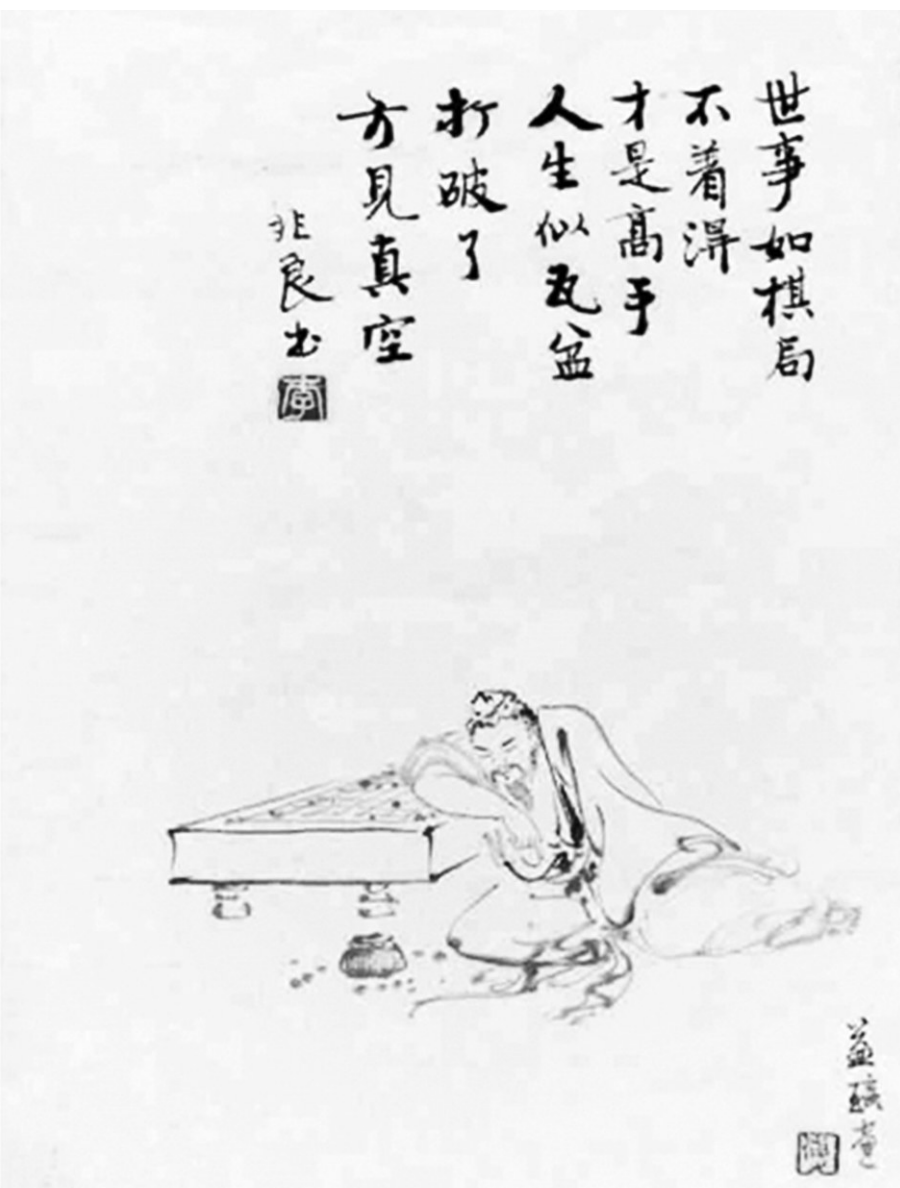 世事如棋局
不着淂
才是高手
人生似瓦盆
打破了
方見真空
兆良书
李